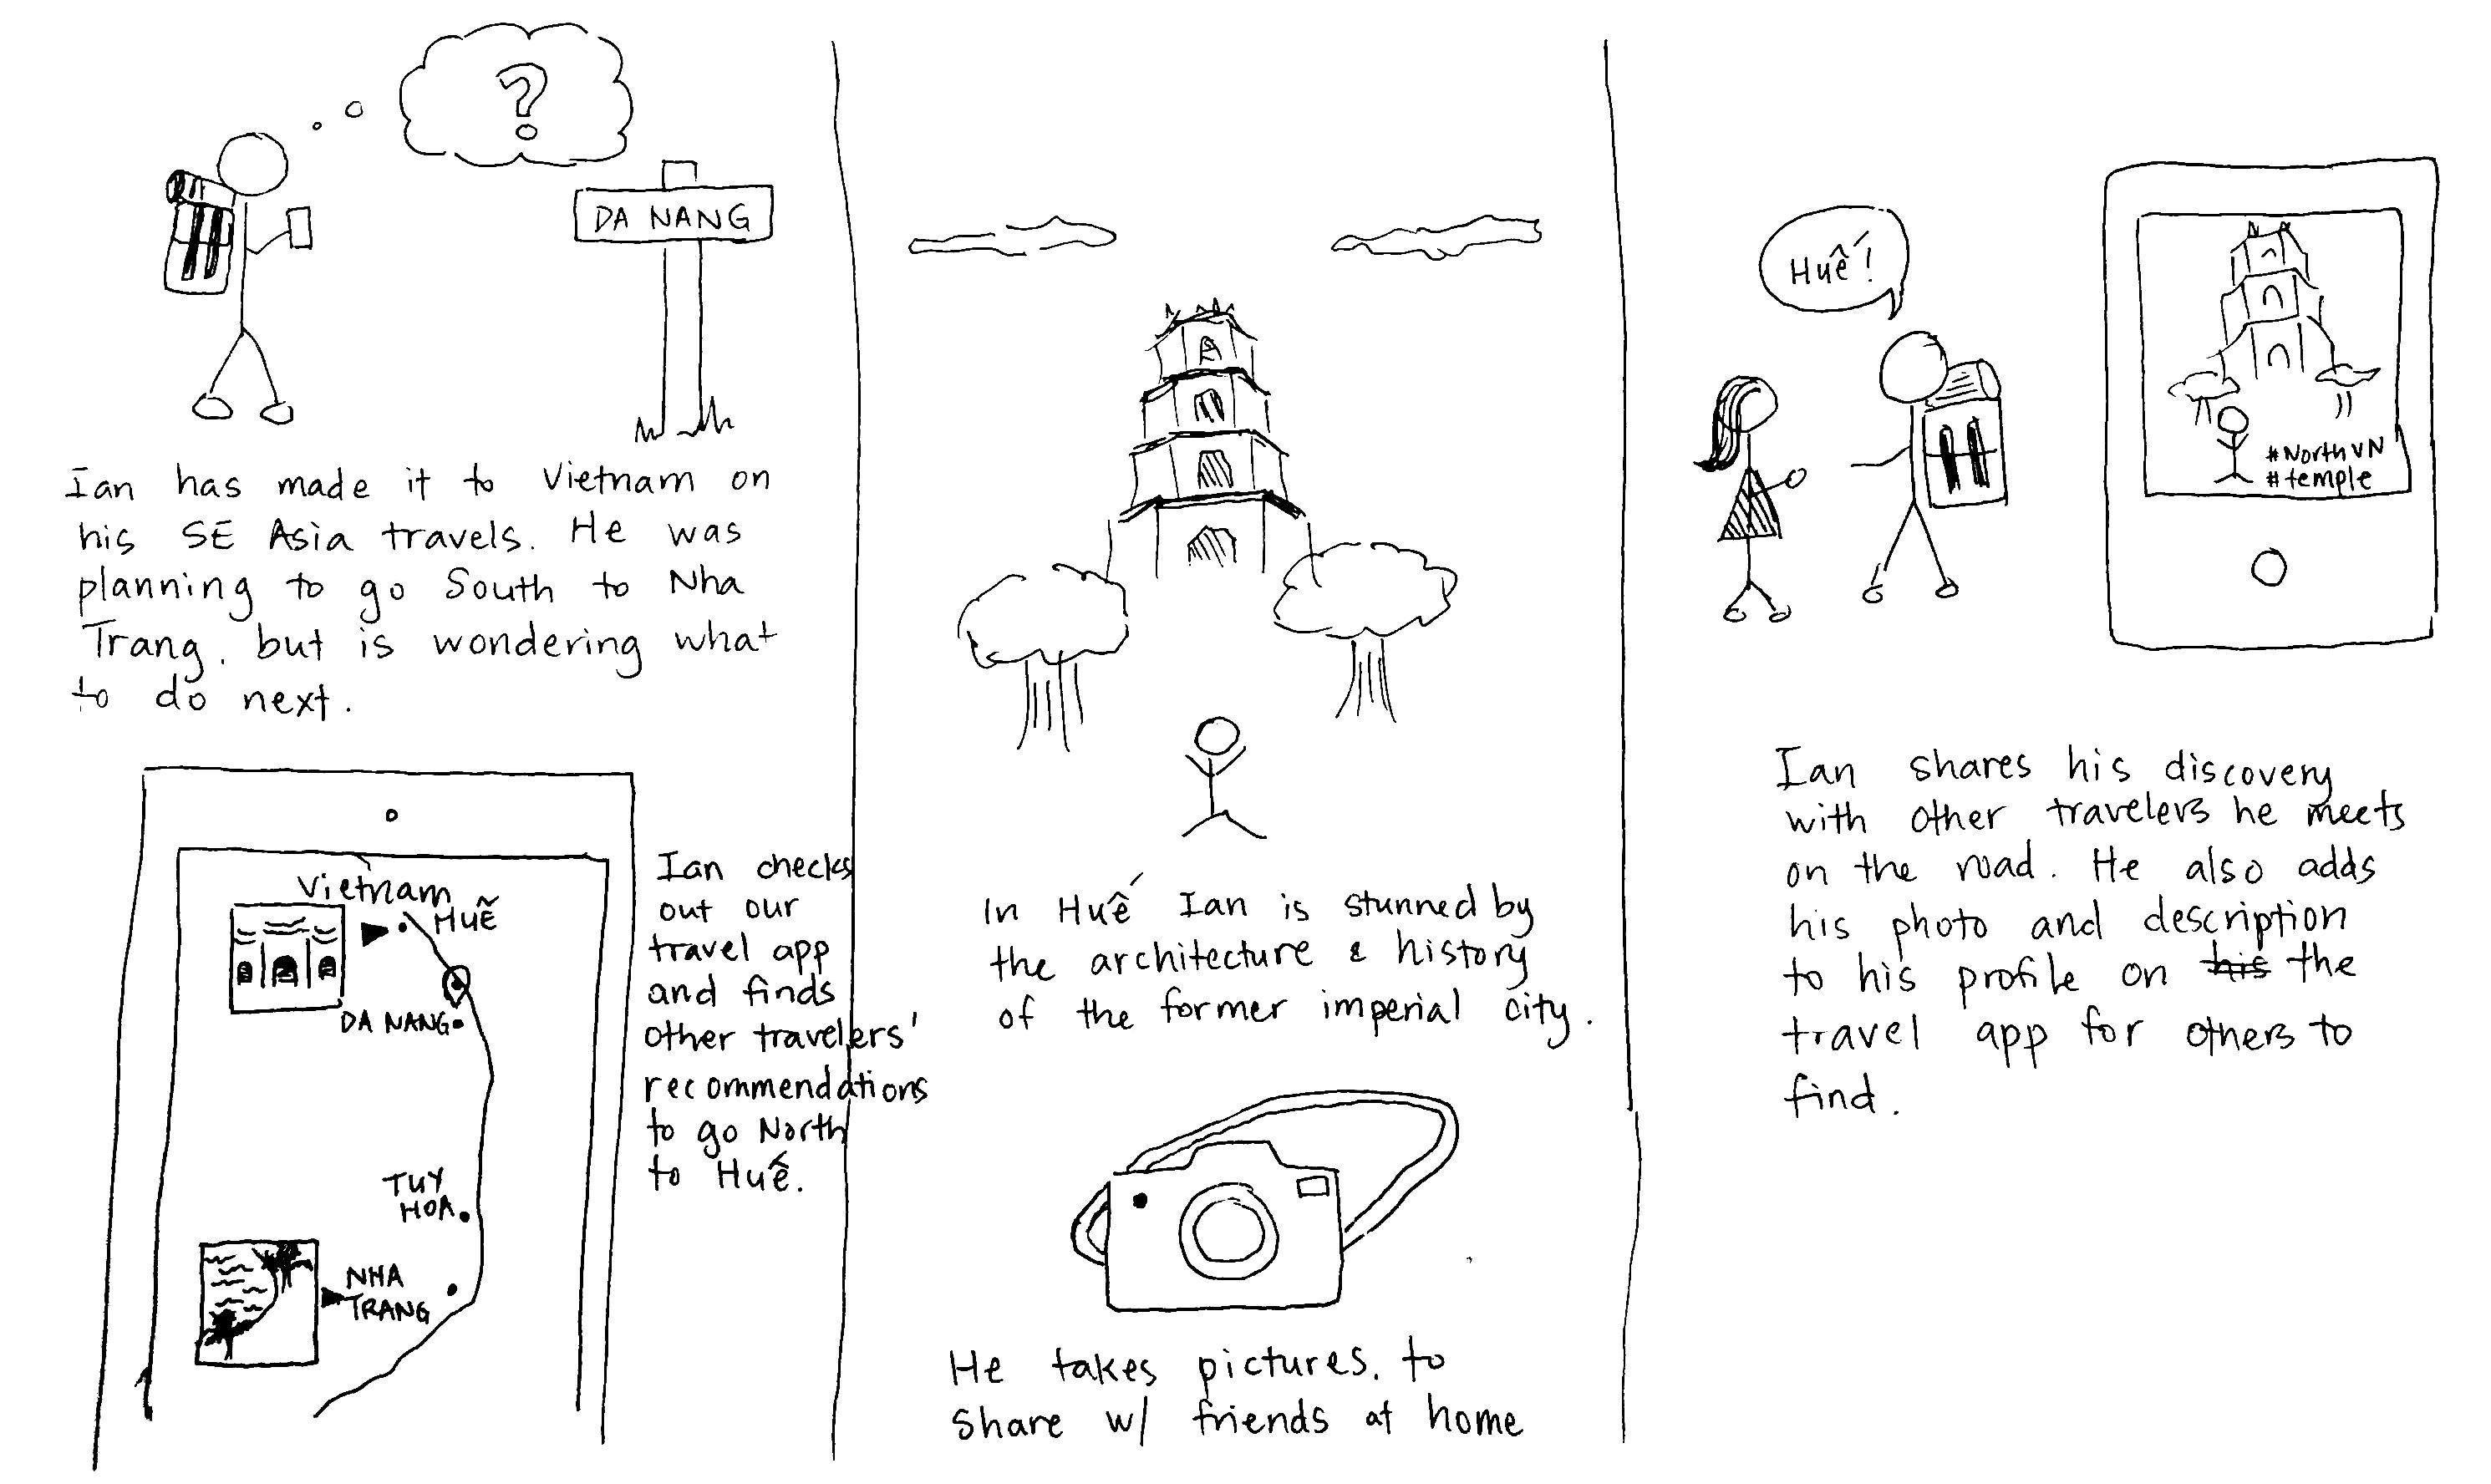 ?
DA NANG
Ian has made it to Vietnam on
his SE Asia travels. He was
planning to go South to Nha
Trang, but is wondering what
to do next.
Vietnam
HUẾ
DA NANG
TUY
HOA
NHA
TRANG
Ian checks
out our
travel app
and finds
other travelers'
recommendations
to go North
to Huế.
In Huế Ian is stunned by
the architecture & history
of the former imperial city.
He takes pictures. to
share w/ friends at home
Huế!
#NorthVN
#temple
Ian shares his discovery
with other travelers he meets
on the road. He also adds
his photo and description
to his profile on his the
travel app for others to
find.